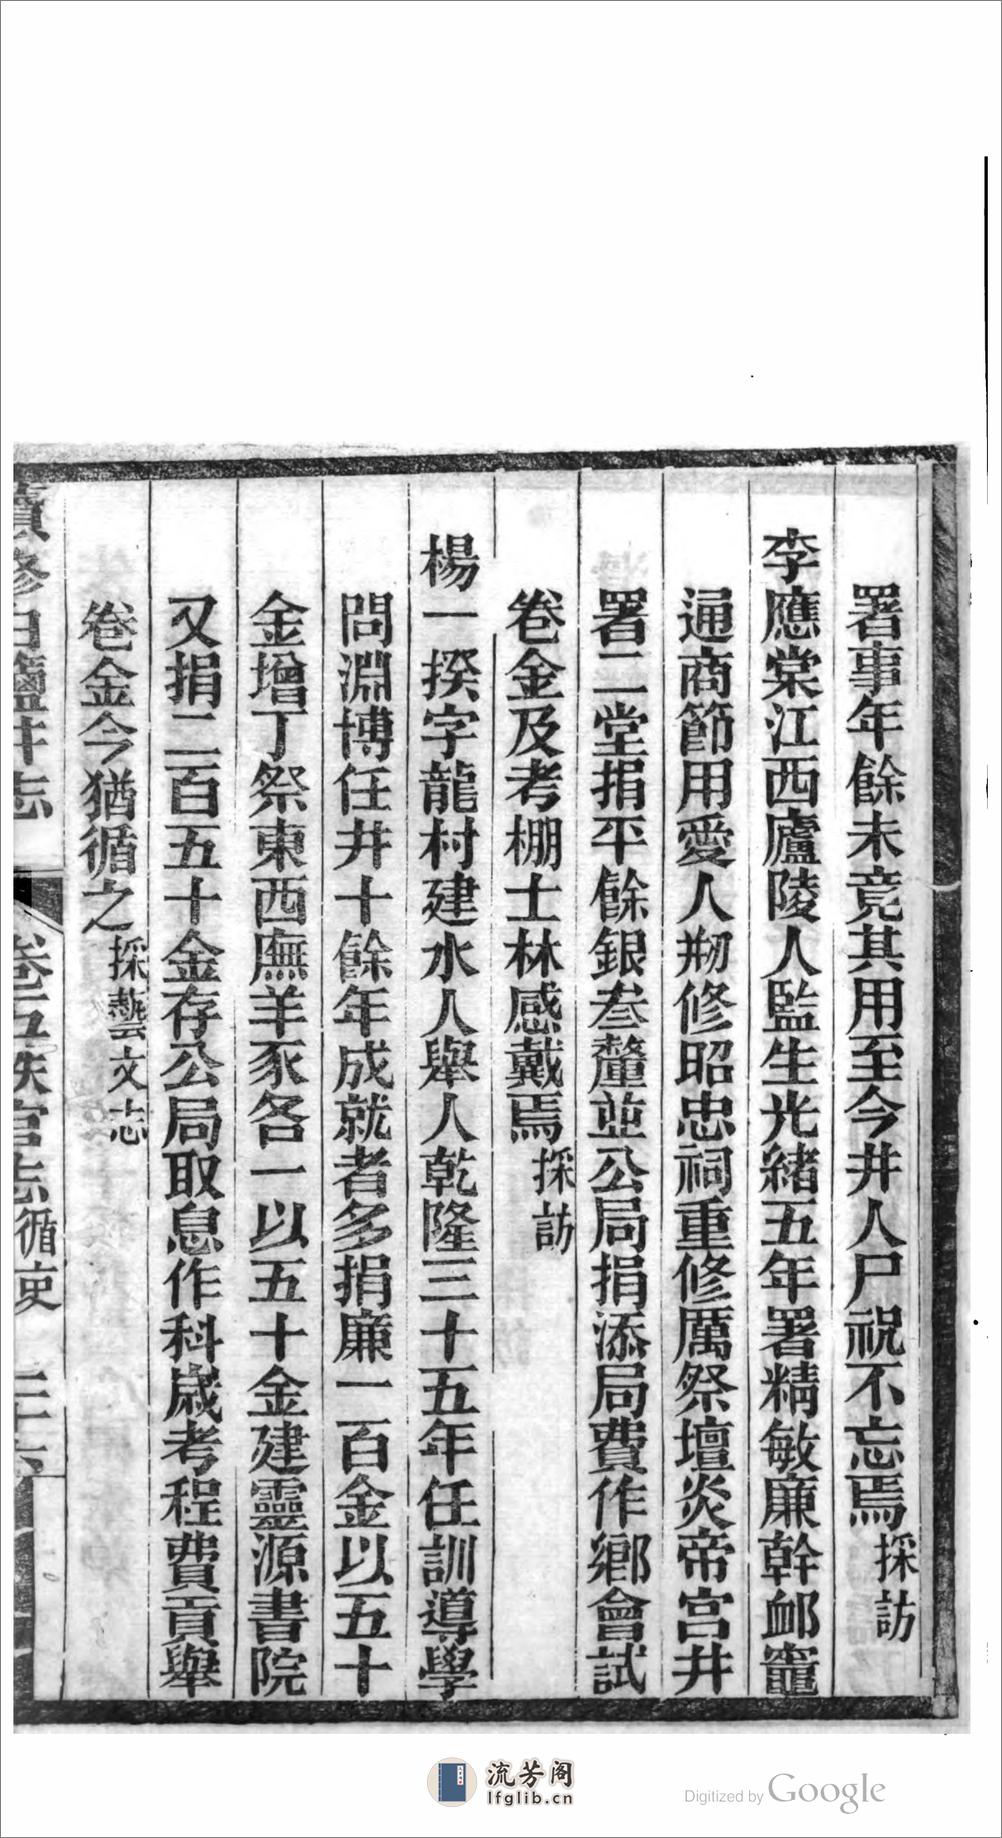 署事年餘未竟其用至今井人尸祝不忘焉採訪
李應棠江西廬陵人監生光緒五年署精敏廉幹衈竈
通商節用愛人剏修昭忠祠重修厲祭壇炎帝宫井
署二堂捐平餘銀叁釐並公局捐添局費作鄉會試
卷金及考棚士林感戴焉採訪
楊一揆字龍村建水人舉人乾隆三十五年任訓導學
問淵博任井十餘年成就者多捐廉一百金以五十
金增丁祭東西廡羊豕各一以五十金建靈源書院
又捐二百五十金存公局取息作科歲考程費貢舉
卷金今猶循之採藝文志
續修白鹽井志
卷五秩官志循吏
流芳阁
lfglib.cn
Digitized by Google